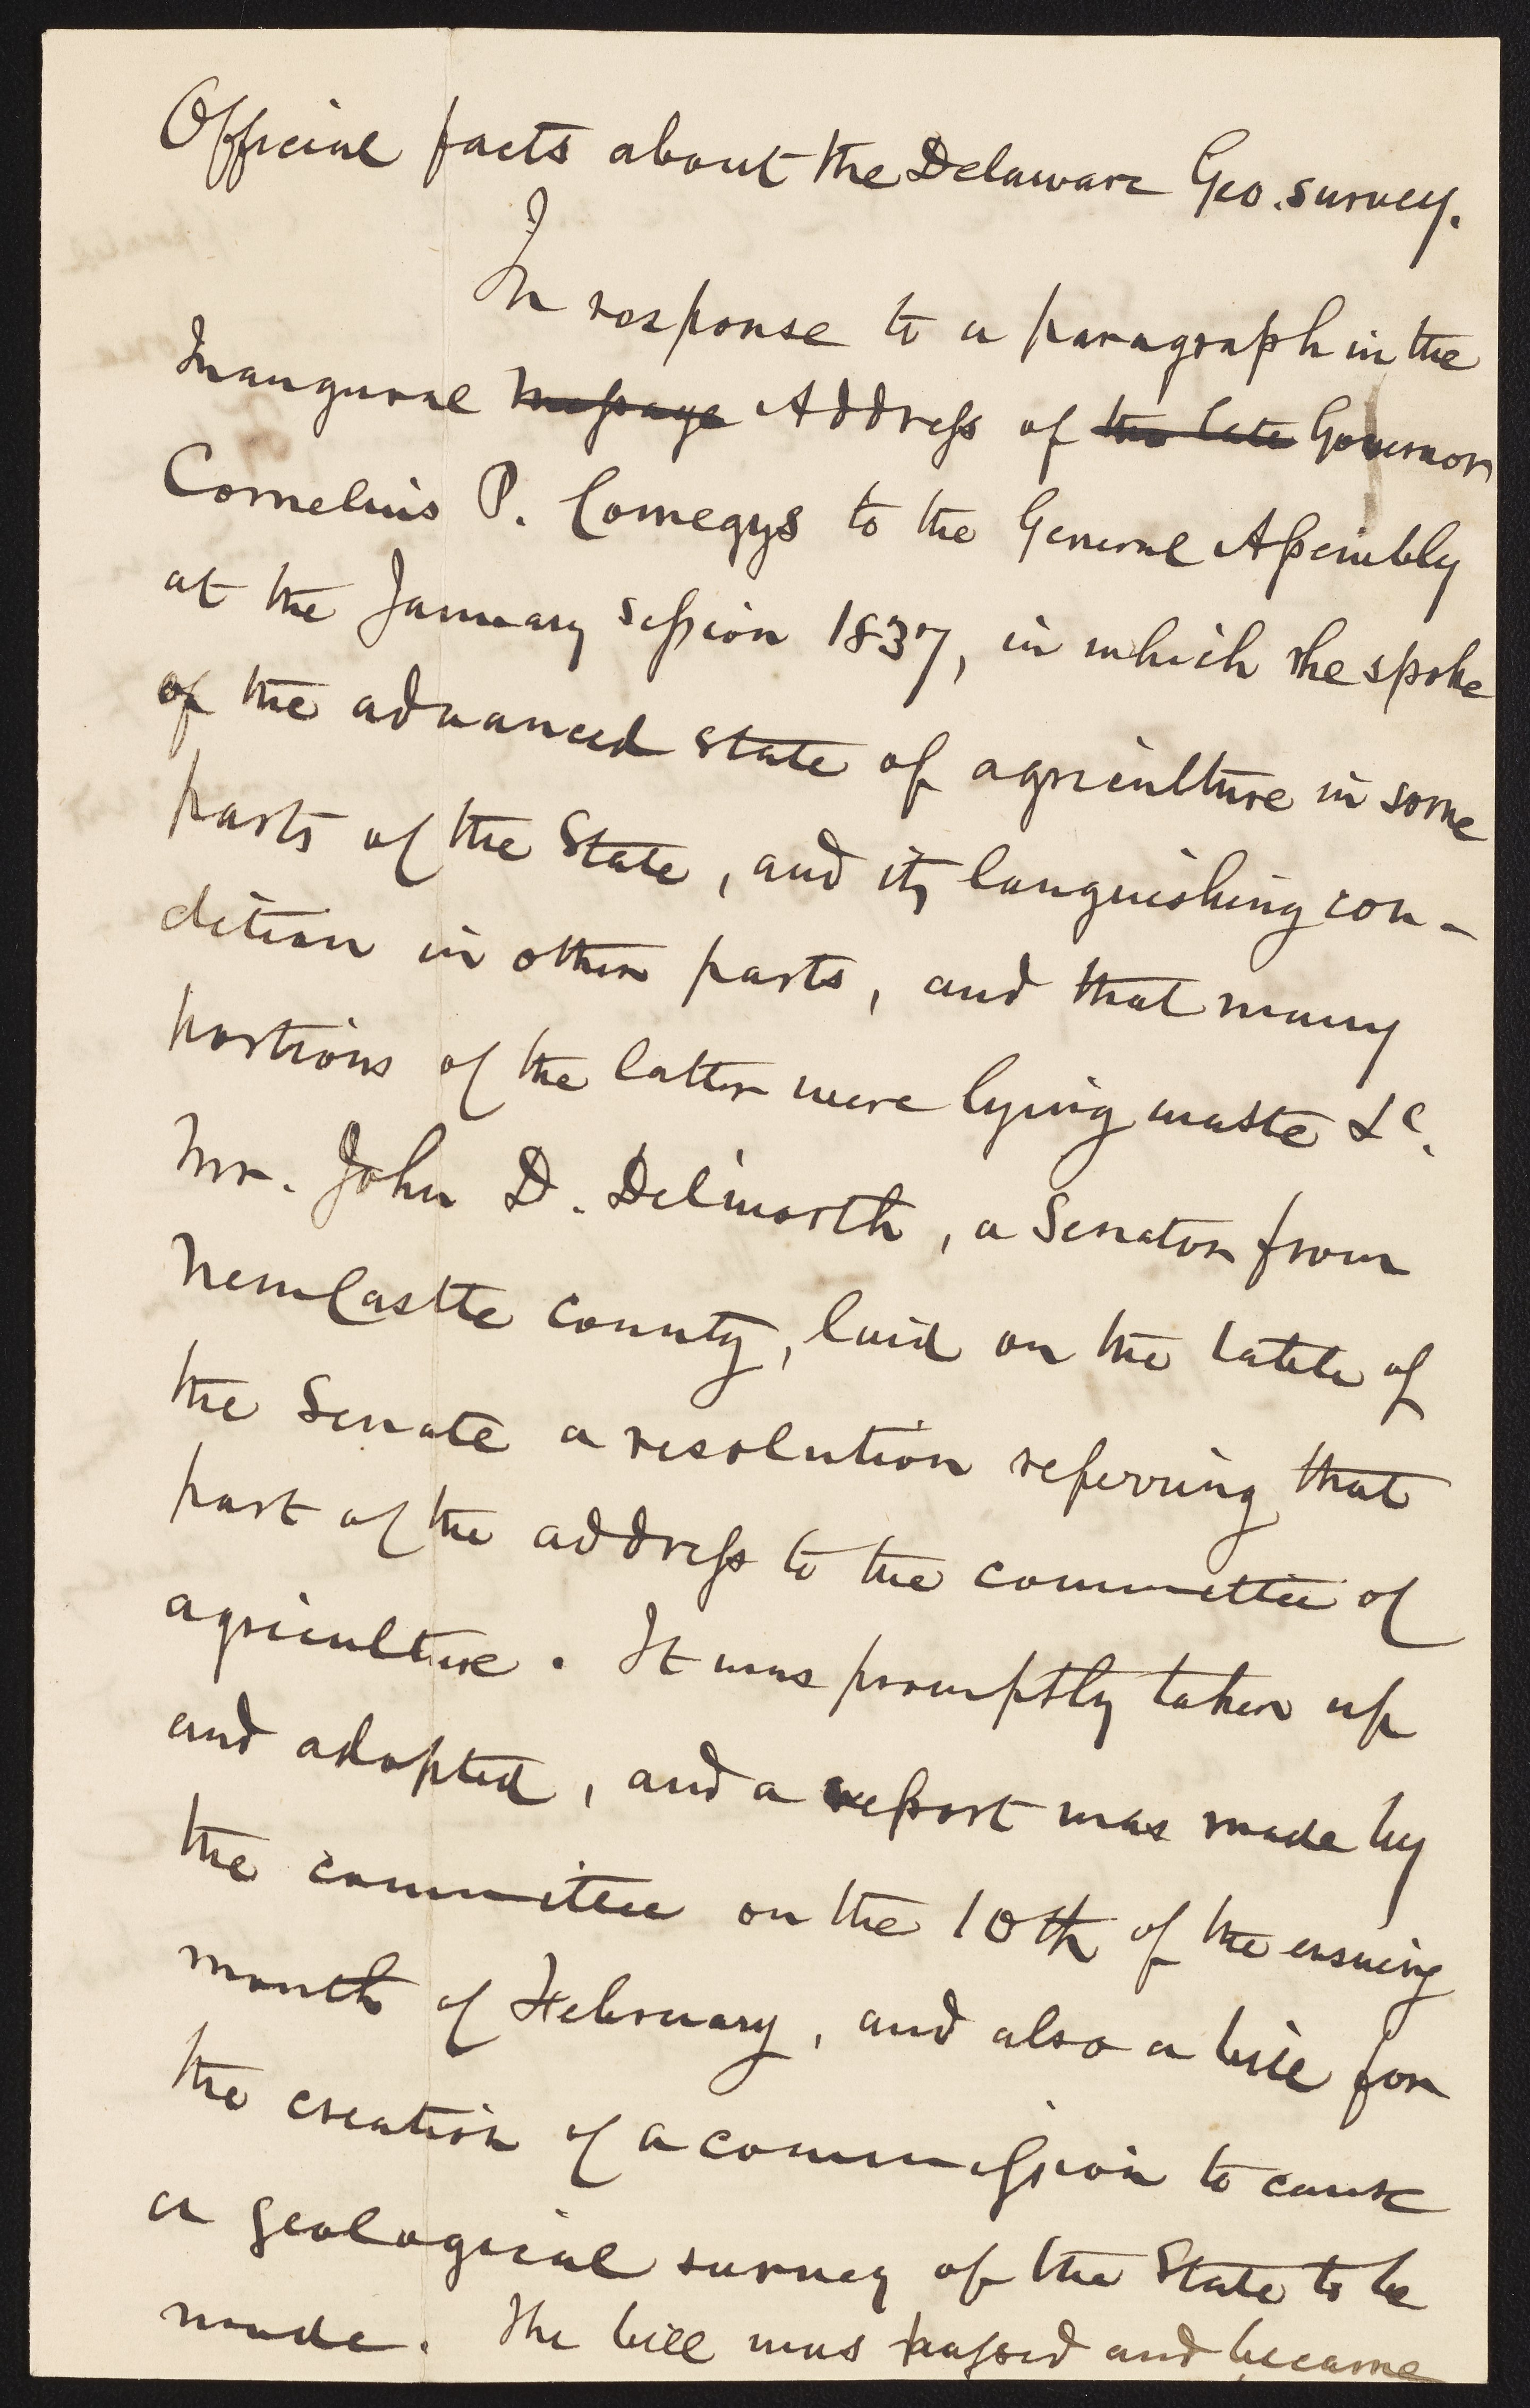 Official facts about the Delaware Geo. survey.
In response to a paragraph in the
Inaugural Message Address of the late Governor
Cornelius P. Comegys to the General Assembly
at the January session 1837, in which he spoke
of the advanced state of agriculture in some
parts of the State, and its languishing con-
dition in other parts, and that many
portions of the latter were lying waste &c.
Mr. John D. Dilworth, a Senator from
New Castle county, laid on the table of
the Senate a resolution referring that
part of the address to the committee of
agriculture. It was promptly taken up
and adopted, and a report was made by
the committee on the 10th of the ensuing
month of February, and also a bill for
the creation of a commission to cause
a geological survey of the State to be
made. The bill was passed and became